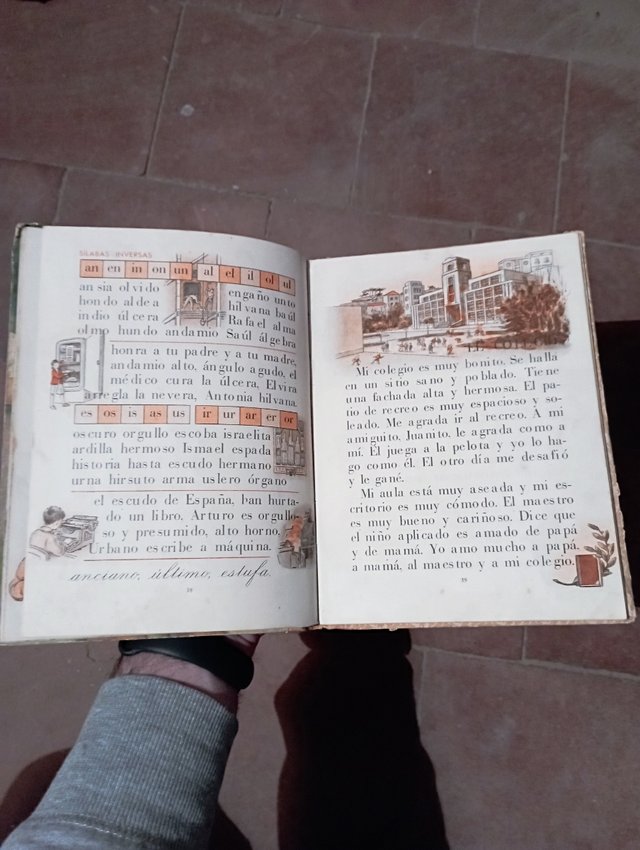 SÍLABAS INVERSAS
an en in on un al el il ol ul
ansia olvido engaño unto
hondo aldea hilvana baúl
indio úlcera Rafael alma
olmo hundo andamio Saúl álgebra
honra a tu padre y a tu madre,
andamio alto, ángulo agudo, el
médico cura la úlcera, Elvira
arregla la nevera, Antonia hilvana.
es os is as us ir ur ar er or
oscuro orgullo escoba israelita
ardilla hermoso Ismael espada
historia hasta escudo hermano
urna hirsuto arma uslero órgano
el escudo de España, han hurta-
do un libro, Arturo es orgullo-
so y presumido, alto horno,
Urbano escribe a máquina.
anciano, último, estufa.
EL COLEGIO
Mi colegio es muy bonito. Se halla
en un sitio sano y poblado. Tiene
una fachada alta y hermosa. El pa-
tio de recreo es muy espacioso y so-
leado. Me agrada ir al recreo. A mi
amiguito, Juanito, le agrada como a
mí. Él juega a la pelota y yo lo ha-
go como él. El otro día me desafió
y le gané.
Mi aula está muy aseada y mi es-
critorio es muy cómodo. El maestro
es muy bueno y cariñoso. Dice que
el niño aplicado es amado de papá
y de mamá. Yo amo mucho a papá,
a mamá, al maestro y a mi colegio.